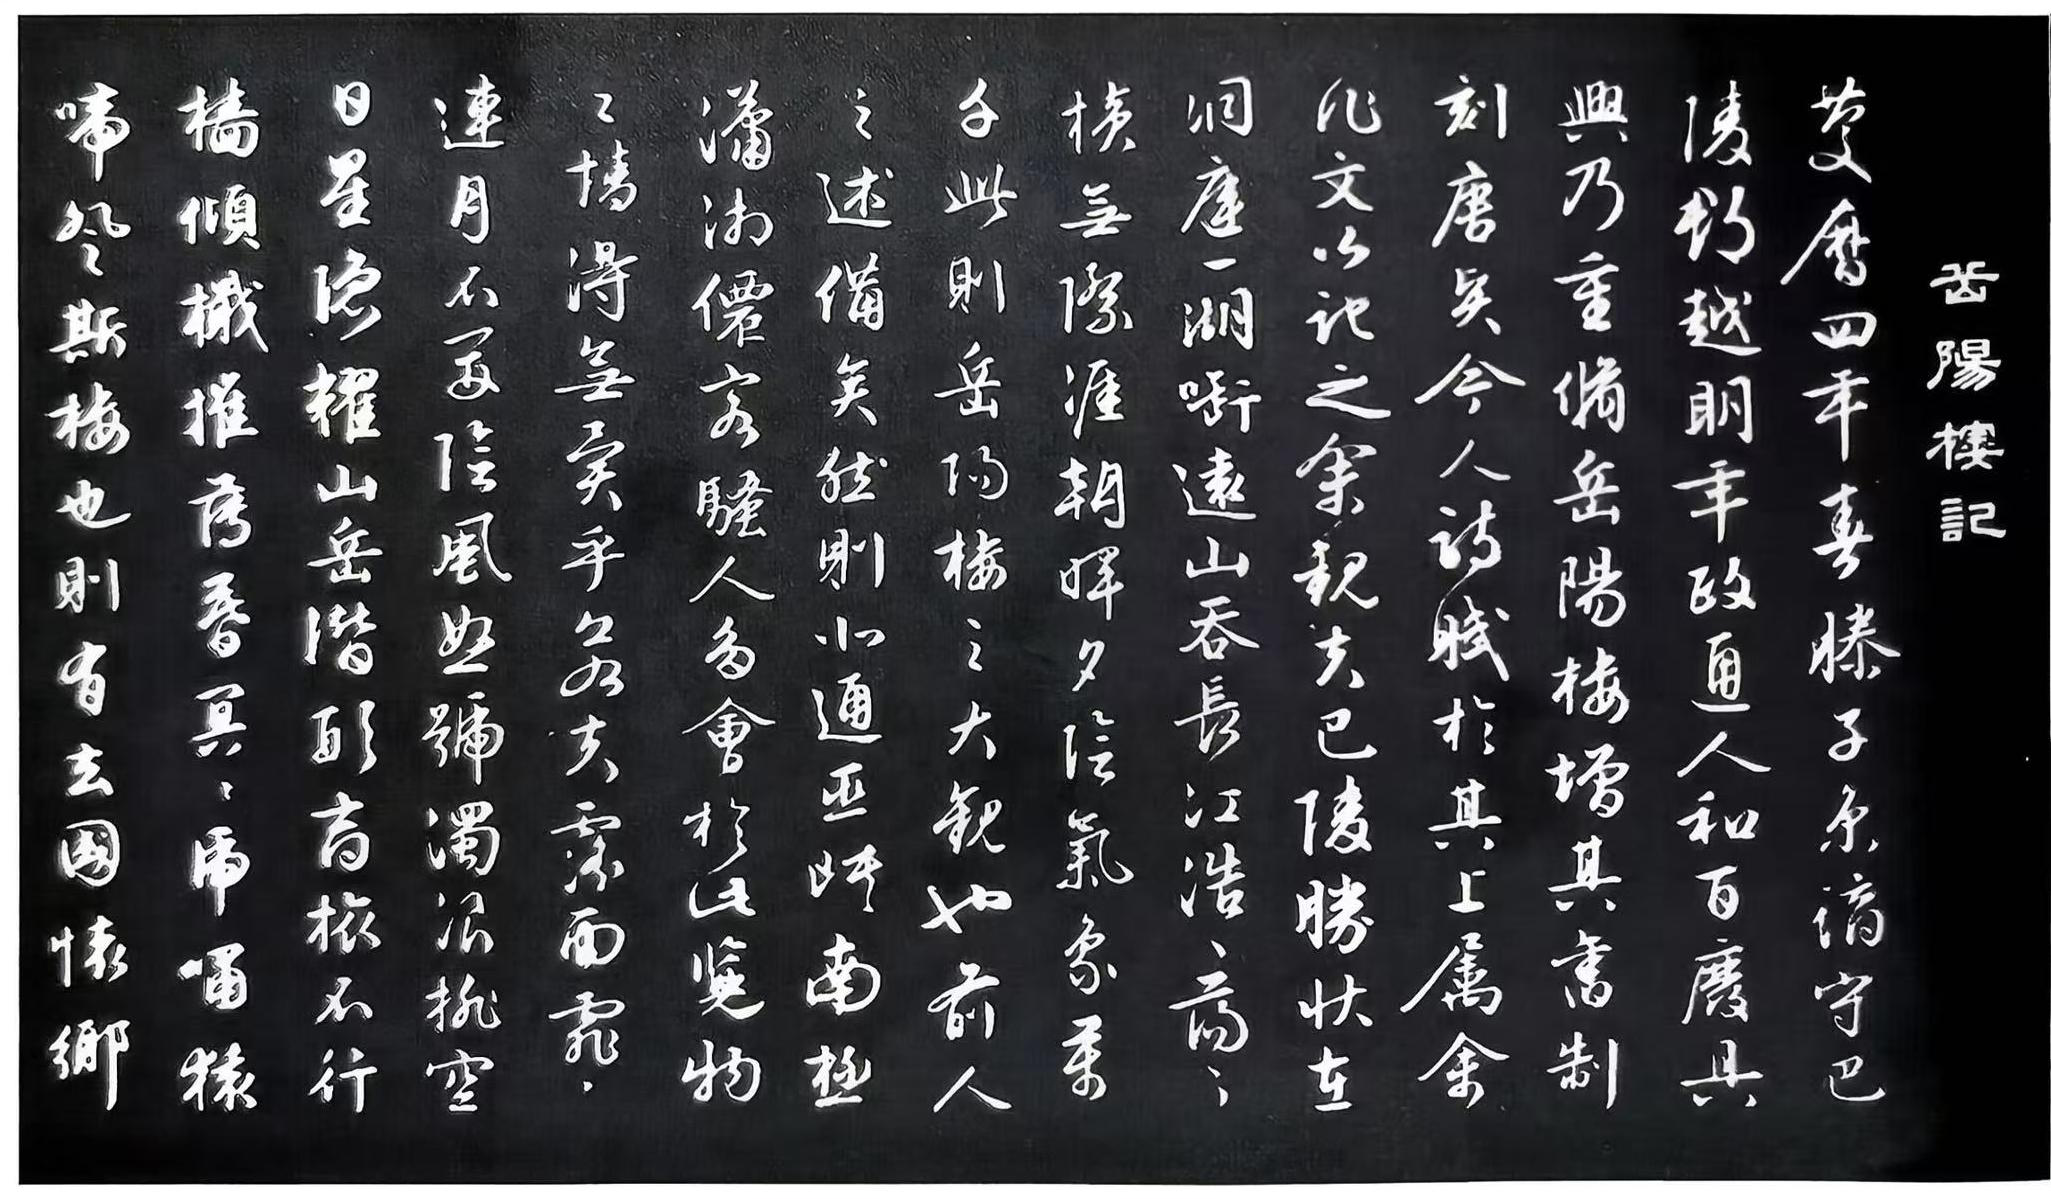 岳陽樓記
慶曆四年春滕子京謫守巴
陵郡越明年政通人和百廢具
興乃重脩岳陽樓增其舊制
刻唐賢今人詩賦於其上属余
作文以記之余觀夫巴陵勝狀在
洞庭一湖啣遠山吞長江浩〻蕩〻
橫無際涯朝暉夕陰氣象萬
千此則岳陽樓之大觀也前人
之述備矣然則北通巫峽南極
瀟湘遷客騷人多會於此覽物
之情得無異乎若夫霖雨霏〻
連月不開陰風怒號濁浪排空
日星隱耀山岳潛形商旅不行
檣傾檝摧薄暮冥〻虎嘯猿
啼登斯樓也則有去國懷鄉